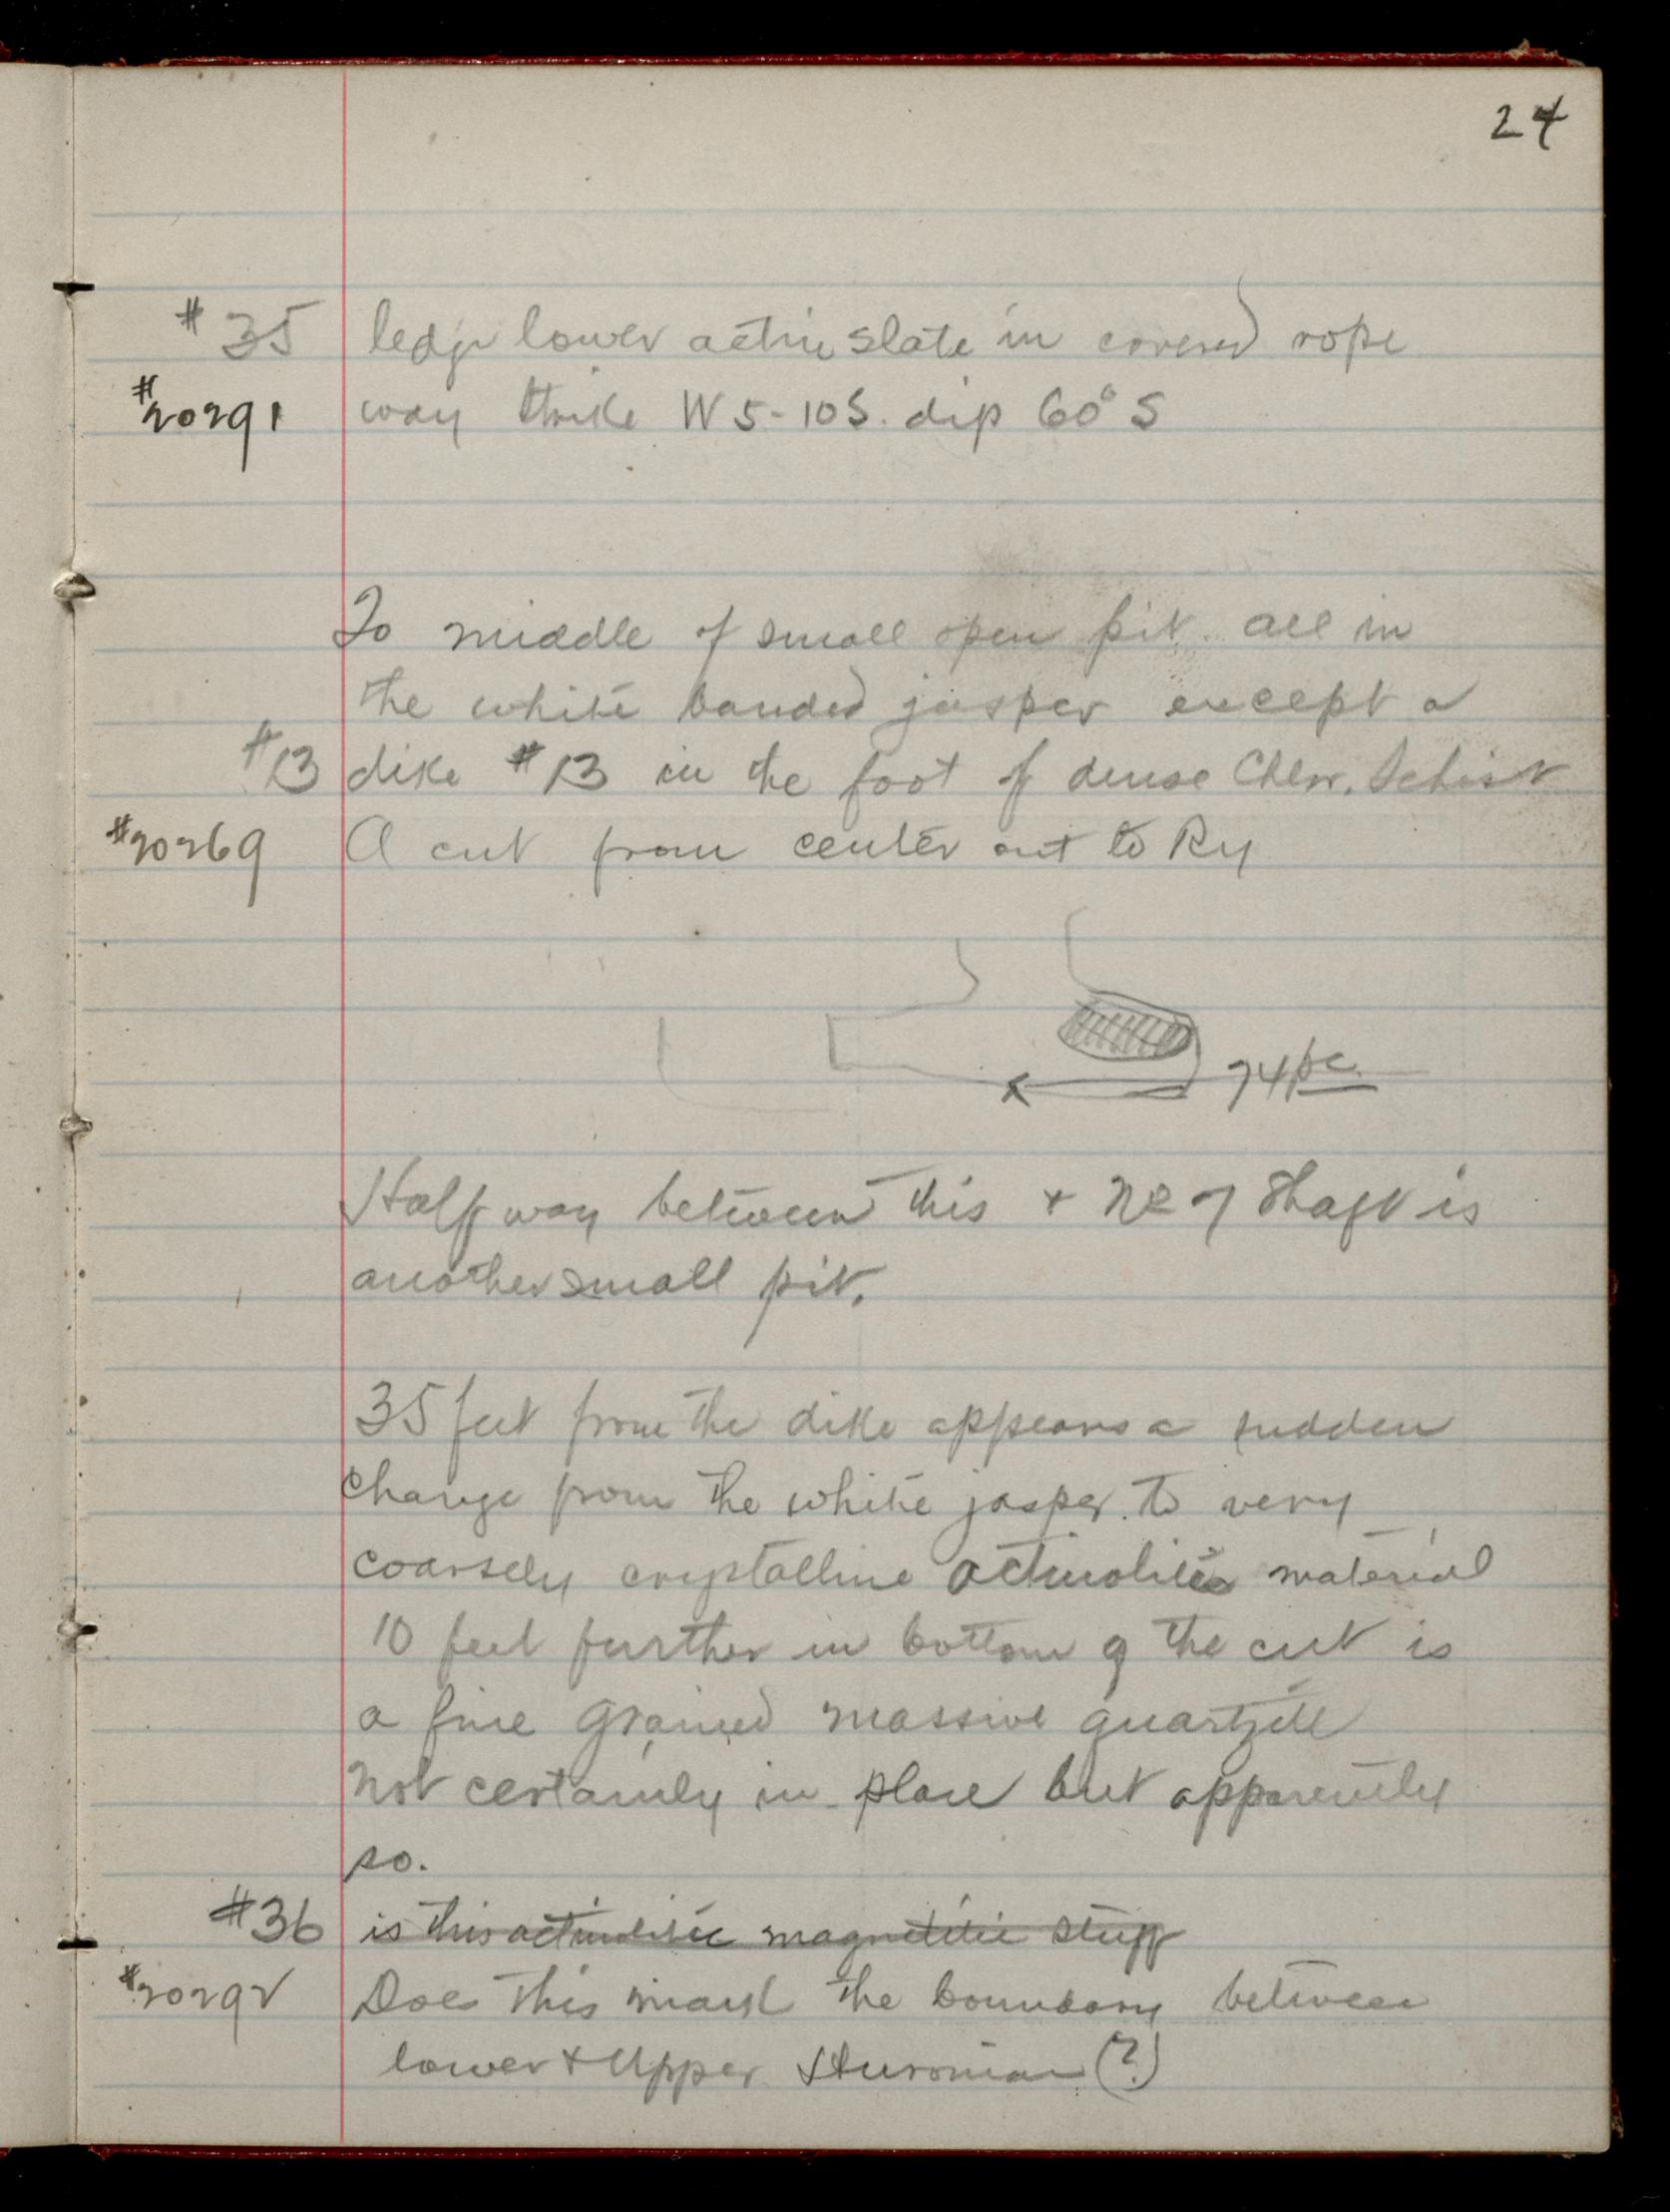 24
#35 ledge lower actin slate in covered rope
#20291 way strike W 5-10S. dip 60° S
To middle of small open pit. all in
the white banded jasper except a
#13 dike #13 in the foot of dense Chlor. Schist
#20269 A cut from center out to Ry
74
Half way between this + No 7 Shaft is
another small pit.
35 feet from the dike appears a sudden
change from the white jasper to very
coarsely crystalline actinolitic material
10 feet further in bottom of the cut is
a fine grained massive quartzite
not certainly in place but apparently
so.
#36 is this actinolitic magnetitic stuff
#20292 Does this mark the boundary between
lower + Upper Huronian (?)